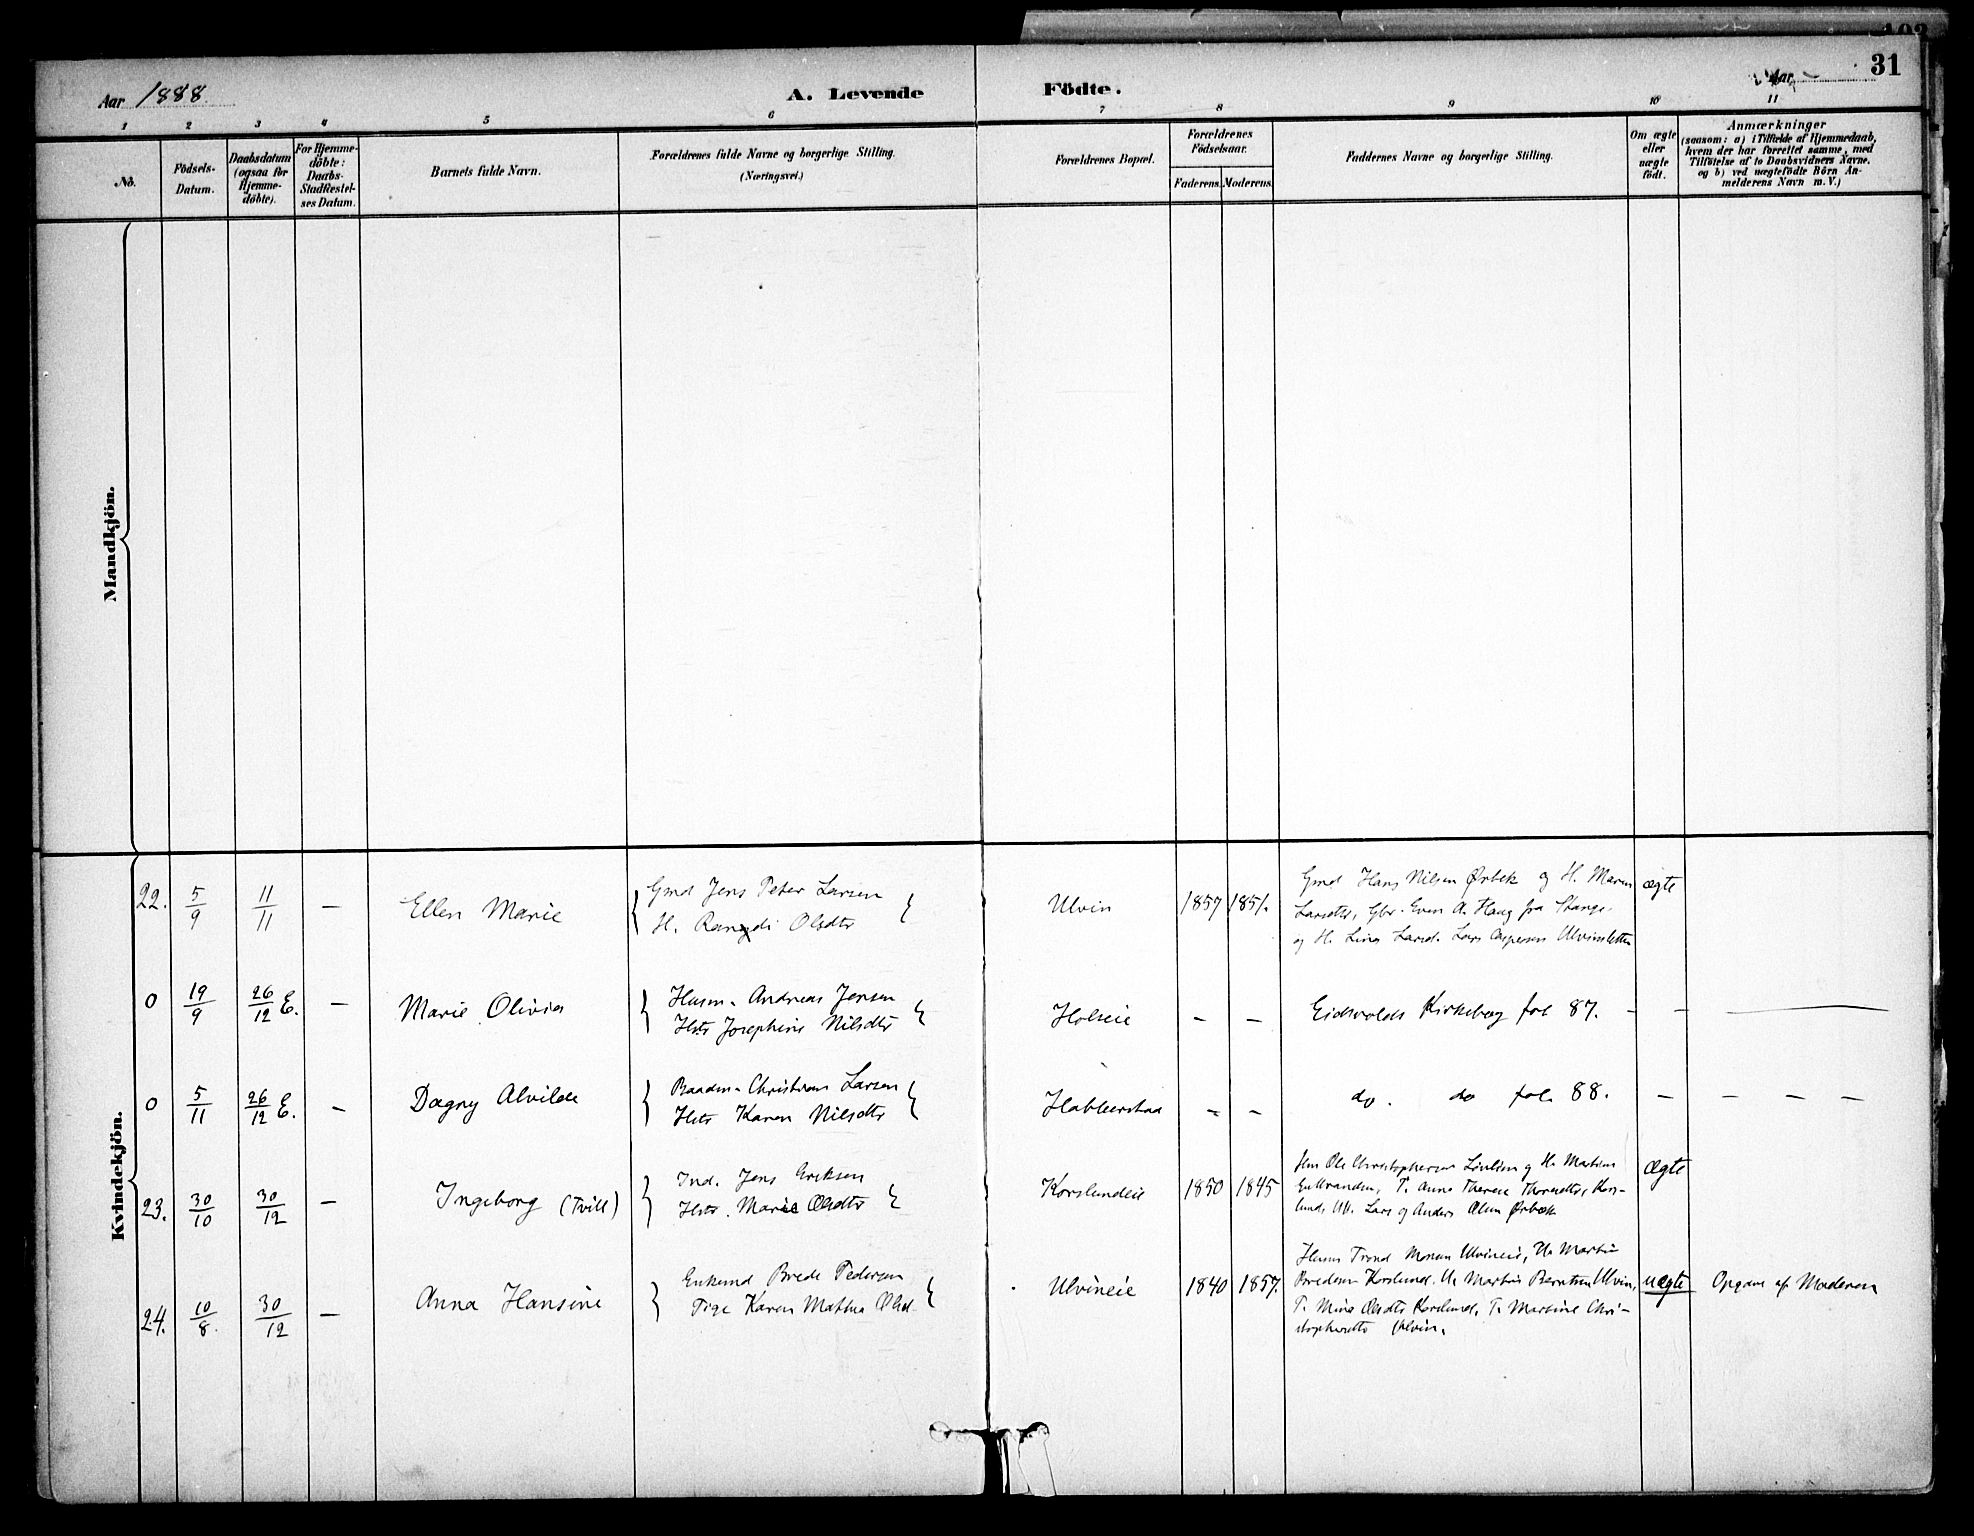 Aar 1888.
A. Levende Födte.
Aar
31
1 2 3 4 5 6 7 8 9 10 11
No.
Födsels-
Datum.
Daabsdatum
(ogsaa for
Hjemme-
döbte).
For Hjemme-
döbte:
Daabs-
Stadfæstel-
ses Datum.
Barnets fulde Navn.
Forældrenes fulde Navne og borgerlige Stilling.
(Næringsvei.)
Forældrenes Bopæl.
Forældrenes
Födselsaar.
Faderens. Moderens.
Faddernes Navne og borgerlige Stilling.
Om ægte
eller
uægte
födt.
Anmærkninger
(saasom: a) i Tilfælde af Hjemmedaab,
hvem der har forrettet samme, med
Tilföielse af to Daabsvidners Navne,
og b) ved uægtefödte Börn An-
melderens Navn m. V.)
Mandkjön.
Kvindekjön.
22. 5/9 11/11 — Ellen Marie
Gmd Jens Peter Larsen
H. Rangdi Olsdtr
Ulvin 1857 1851.
Gmd Hans Nilsen Ørbek og H. Maren
Larsdtr, Gbr. Even A. Haug fra Stange
og H. Lina Larsd. Lars Caspersen Ulvinsletten
ægte
0 19/9 26/12 E. — Marie Olivia
Husm. Andreas Jensen
Hstr Josephine Nilsdtr
Holseie — —
Eidsvolds Kirkebog fol 87. — — —
0 5/11 26/12 E. — Dagny Alvilde
Baadm. Christian Larsen
Hstr Karen Nilsdtr
Habberstad — —
do. do fol. 88. — — — —
23. 30/10 30/12 — Ingeborg (Tvill)
Ind. Jens Eriksen
Hstr. Marie Olsdtr
Korslundeie 1850 1845
Ole Christophersen og H. Martine
Gulbrandsen, P. Anne Therese Thorsdtr, Kors-
lund, Uk. Lars og Anders Olsen Ørbek
ægte
24. 10/8. 30/12 — Anna Hansine
Enkemd Brede Pedersen
Pige Karen Mathea Olsd.
Ulvineie 1840 1857.
Husm Trond Monsen Ulvineie, H. Martin
Bredesen Korslund. U. Martius Berntsen Ulvin,
P. Mina Olsdtr Korslund, P. Martine Chri-
stophersdtr Ulvin.
uægte Opgave af Moderen